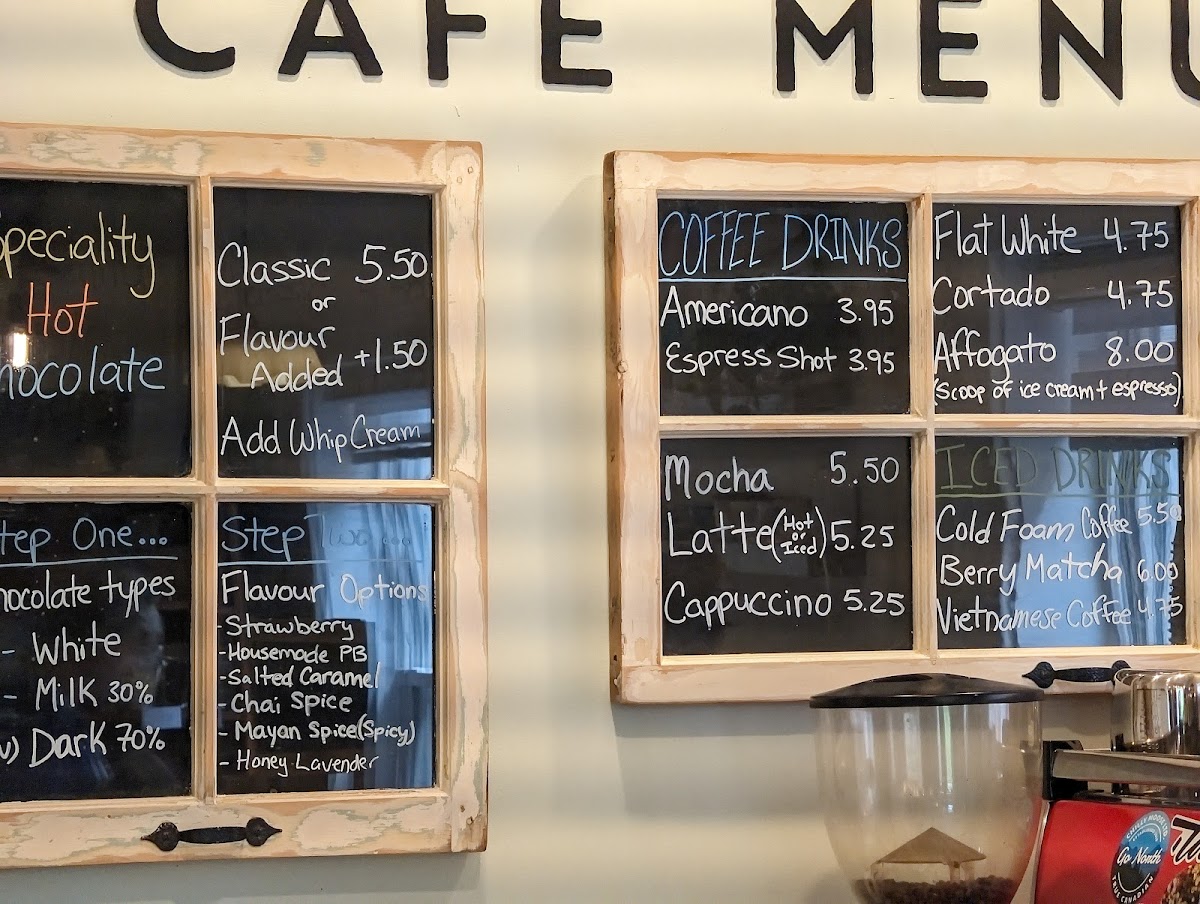 CAFE MENU
Speciality
Hot
Chocolate
Classic 5.50
or
Flavour
Added +1.50
Add Whip Cream
Step One...
Chocolate types
- White
- Milk 30%
Dark 70%
Step Two...
Flavour Options
- Strawberry
- Housemade PB
- Salted Caramel
- Chai Spice
- Mayan Spice (Spicy)
- Honey Lavender
COFFEE DRINKS
Americano 3.95
Espress Shot 3.95
Flat White 4.75
Cortado 4.75
Affogato 8.00
(Scoop of ice cream + espresso)
Mocha 5.50
Latte (Hot or Iced) 5.25
Cappuccino 5.25
ICED DRINKS
Cold Foam Coffee 5.50
Berry Matcha 6.00
Vietnamese Coffee 4.75
Go North
TRUE CANADIAN